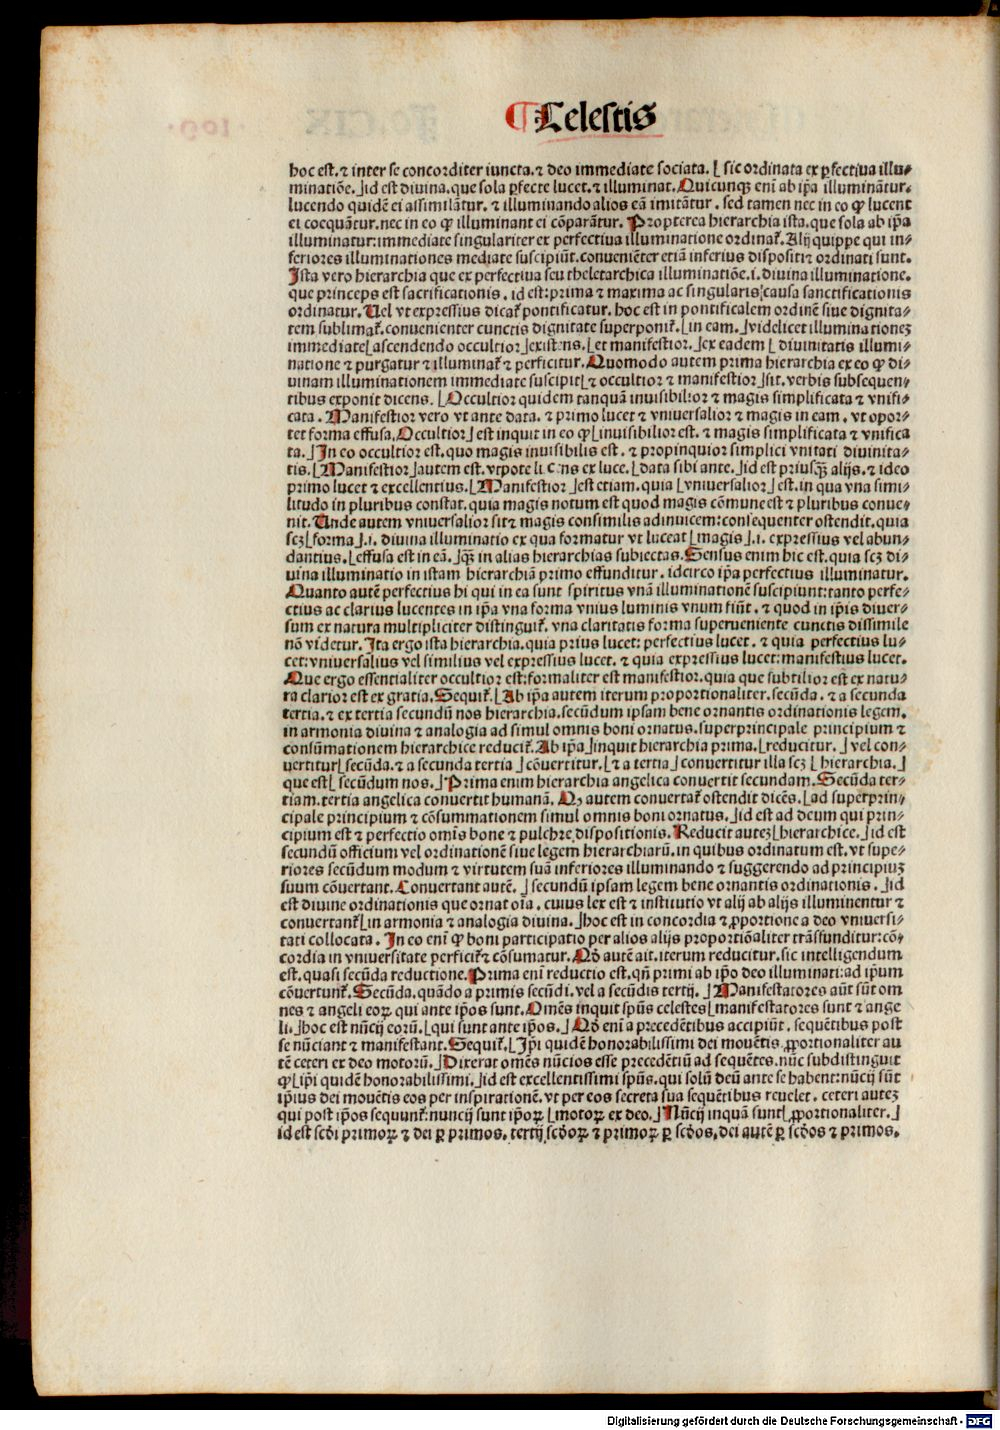 ¶Celestis
hoc est. ⁊ inter se concorditer iuncta. ⁊ deo immediate sociata. ⌊ sic ordinata ex ꝑfectiua illu⸗
minatiõe. ⌋id est diuina. que sola ꝑfecte lucet. ⁊ illuminat. Quicunqꝫ eni᷒ ab ip̃a illuminãtur.
lucendo quidẽ ei assimilãtur. ⁊ illuminando alios eã imitãtur. sed tamen nec in eo ꝙ lucent
ei coequãtur. nec in eo ꝙ illuminant ei cõparãtur. Propterea hierarchia ista. que sola ab ip̃a
illuminatur: immediate singulariter ex perfectiua illuminatione ordinat᷒. Alij quippe qui in⸗
feriores illuminationes mediate suscipiũt. conueniẽter etiã inferius dispositi ⁊ ordinati sunt.
Ista vero hierarchia que ex perfectiua seu theletarchica illuminatiõe .i. diuina illuminatione.
que princeps est sacrificationis. id est: prima ⁊ maxima ac singularis causa sanctificationis
ordinatur. Uel vt expressius dicat᷒ pontificatur. hoc est in pontificalem ordinẽ siue dignita⸗
tem sublimat᷒. conuenienter cunctis dignitate superponit᷒. ⌊in eam. ⌋videlicet illuminationeꝫ
immediate⌊ascendendo occultior⌋existẽs. ⌊et manifestior. ⌋ex eadem ⌊ diuinitatis illumi⸗
natione ⁊ purgatur ⁊ illuminat᷒ ⁊ perficitur. Quomodo autem prima hierarchia ex eo ꝙ di⸗
uinam illuminationem immediate suscipit⌊⁊ occultior ⁊ manifestior⌋sit. verbis subsequen⸗
tibus exponit dicens. ⌊Occultior quidem tanquã inuisibilior ⁊ magis simplificata ⁊ vnifi⸗
cata. Manifestior vero vt ante data. ⁊ primo lucet ⁊ vniuersalior ⁊ magis in eam. vt opor⸗
tet forma effusa. Occultior⌋est inquit in eo ꝙ⌊inuisibilior est. ⁊ magis simplificata ⁊ vnifica
ta. ⌋In eo occultior est. quo magis inuisibilis est. ⁊ propinquior simplici vnitati diuinita⸗
tis. ⌊Manifestior⌋autem est. vtpote ex luce. ⌊data sibi ante. ⌋id est priusqꝫ̃ alijs. ⁊ ideo
primo lucet ⁊ excellentius. ⌊Manifestior ⌋est etiam. quia ⌊vniuersalior⌋est. in qua vna simi⸗
litudo in pluribus constat. quia magis notum est quod magis cõmune est ⁊ pluribus conue⸗
nit. Unde autem vniuersalior sit ⁊ magis consimilis adinuicem: consequenter ostendit. quia
scꝫ⌊forma⌋.i. diuina illuminatio ex qua formatur vt luceat⌊magis⌋.i. expressius vel abun⸗
dantius. ⌊effusa est in eã. ⌋qꝫ̃ in alias hierarchias subiectas. Sensus enim hic est. quia scꝫ di⸗
uina illuminatio in istam hierarchiã primo effunditur. idcirco ip̃a perfectius illuminatur.
Quanto autẽ perfectius hi qui in ea sunt spiritus vnã illuminationẽ suscipiunt: tanto perfe⸗
ctius ac clarius lucentes in ip̃a vna forma vnius luminis vnum fiũt. ⁊ quod in ip̃is diuer⸗
sum ex natura multipliciter distinguit᷒. vna claritatis forma superueniente cunctis dissimile
nõ videtur. Ita ergo ista hierarchia. quia prius lucet: perfectius lucet. ⁊ quia perfectius lu⸗
cet: vniuersalius vel similius vel expressius lucet. ⁊ quia expressius lucet: manifestius lucet.
Que ergo essentialiter occultior est: formaliter est manifestior. quia que subtilior est ex natu⸗
ra clarior est ex gratia. Sequit᷒. ⌊Ab ip̃a autem iterum proportionaliter. secũda. ⁊ a secunda
tertia. ⁊ ex tertia secundũ nos hierarchia. secũdum ipsam bene ornantis ordinationis legem.
in armonia diuina ⁊ analogia ad simul omnis boni ornatus. superprincipale principium ⁊
consũmationem hierarchice reducit᷒. Ab ip̃a⌋inquit hierarchia prima. ⌊reducitur. ⌋ vel con⸗
uertitur⌊secũda. ⁊ a secunda tertia ⌋ cõuertitur. ⌊⁊ a tertia⌋conuertitur illa scꝫ ⌊hierarchia. ⌋
que est⌊ secũdum nos. ⌋Prima enim hierarchia angelica conuertit secundam. Secũda ter⸗
tiam. tertia angelica conuertit humanã. Qꝫ autem conuertat᷒ ostendit dicẽs. ⌊ad superprin⸗
cipale principium ⁊ cõsummationem simul omnis boni ornatus. ⌋id est ad deum qui prin⸗
cipium est ⁊ perfectio omĩs bone ⁊ pulchre dispositionis. Reducit auteꝫ⌊hierarchice. ⌋id est
secundũ officium vel ordinationẽ siue legem hierarchiarũ. in quibus ordinatum est. vt supe⸗
riores secũdum modum ⁊ virtutem suã inferiores illuminando ⁊ suggerendo ad principiuꝫ
suum cõuertant. Conuertant autẽ. ⌋ secundũ ipsam legem bene ornantis ordinationis. ⌋id
est diuine ordinationis que ornat oĩa. cuius lex est ⁊ institutio vt alij ab alijs illuminentur ⁊
conuertant᷒⌊in armonia ⁊ analogia diuina. ⌋hoc est in concordia ⁊ ꝓportione a deo vniuersi⸗
tati collocata. In eo eni᷒ ꝙ boni participatio per alios alijs proportiõaliter trãsfunditur: cõ⸗
cordia in vniuersitate perficit᷒ ⁊ cõsumatur. Qđ autẽ ait. iterum reducitur. sic intelligendum
est. quasi secũda reductione. Prima eni᷒ reductio est. qñ primi ab ip̃o deo illuminati: ad ip̃um
cõuertunt᷒. Secũda. quãdo a primis secũdi. vel a secũdis tertij. ⌋Manifestatores aũt sũt om
nes ⁊ angeli eoꝝ qui ante ip̃os sunt. Omẽs inquit sp̃us celestes⌊manifestatores sunt ⁊ ange
li. ⌋hoc est nũcij eorũ. ⌊qui sunt ante ip̃os. ⌋ Qđ eni᷒ a precedẽtibus accipiũt. sequẽtibus post
se nũciant ⁊ manifestant. Sequit᷒. ⌊Ip̃i quidẽ honorabilissimi dei mouẽtis. ꝓportionaliter au
tẽ ceteri ex deo motorũ. ⌋Dixerat omẽs nũcios esse precedẽtiũ ad sequẽtes. nũc subdistinguit
ꝙ⌊ip̃i quidẽ honorabilissimi. ⌋id est excellentissimi sp̃us. qui solũ deũ ante se habent: nũcij sũt
ip̃ius dei mouẽtis eos per inspirationẽ. vt per eos secreta sua sequẽtibus reuelet. ceteri auteꝫ
qui post ip̃os sequunt᷒: nuncij sunt ip̃oꝝ ⌊motoꝝ ex deo. ⌋Nũcij inquã sunt⌊ꝓportionaliter. ⌋
id est scđi primoꝝ ⁊ dei ꝑ primos. tertij scđoꝝ ⁊ primoꝝ ꝑ scđos. dei autẽ ꝑ scđos ⁊ primos.
Digitalisierung gefördert durch die Deutsche Forschungsgemeinschaft - DFG